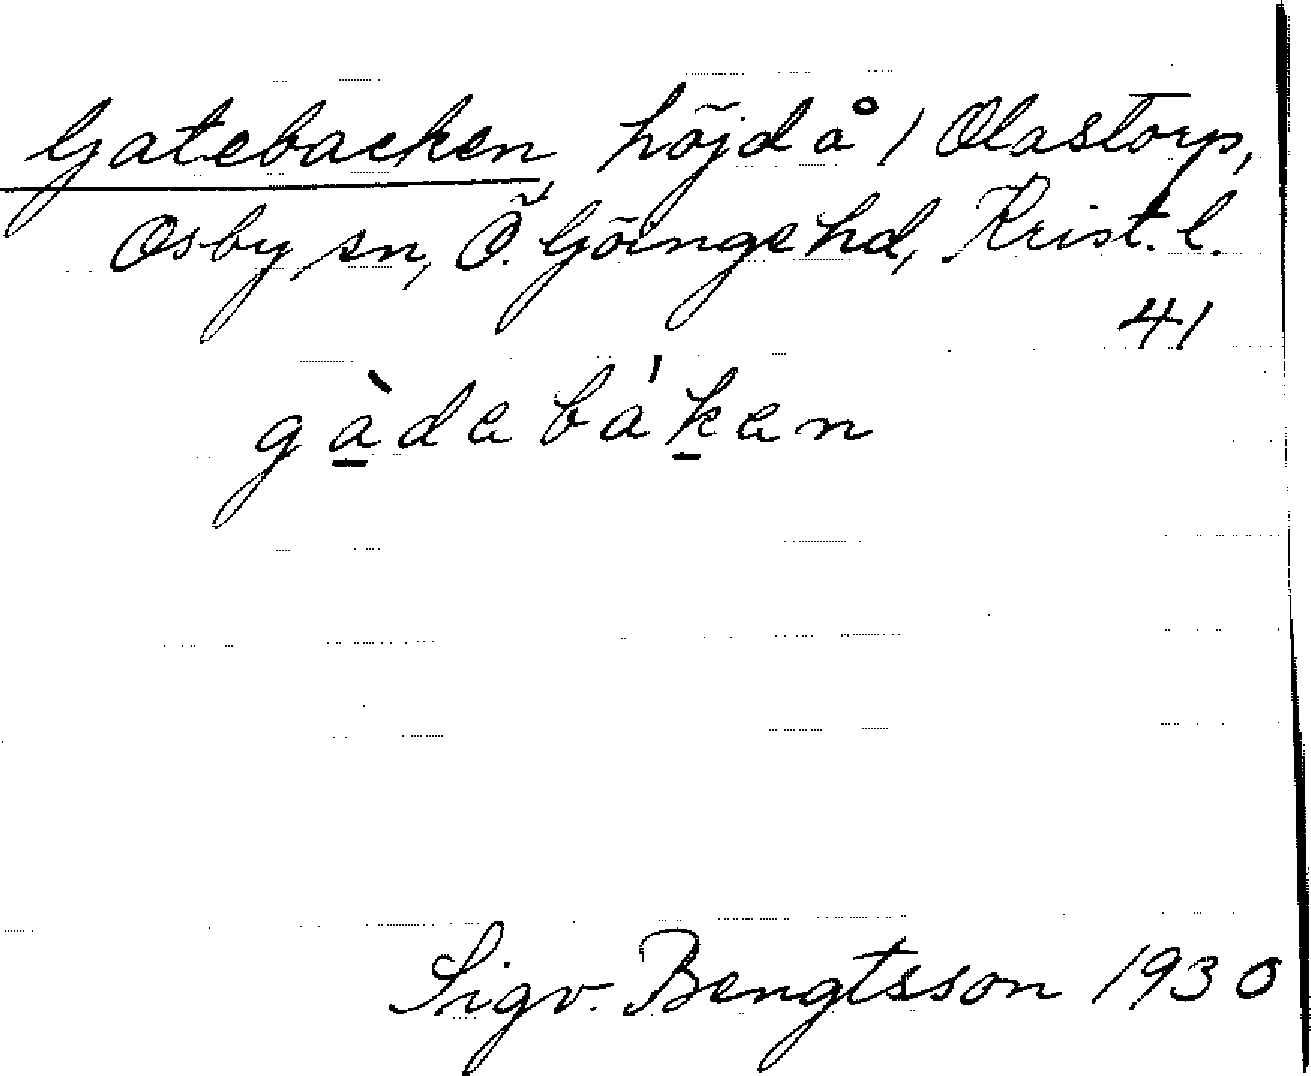 Gatebacken, höjd å 1 Olastorp,
Osby sn, Ö. Göinge hd, Krist. l.
41
gàdebáken
Sigv. Bengtsson 1930